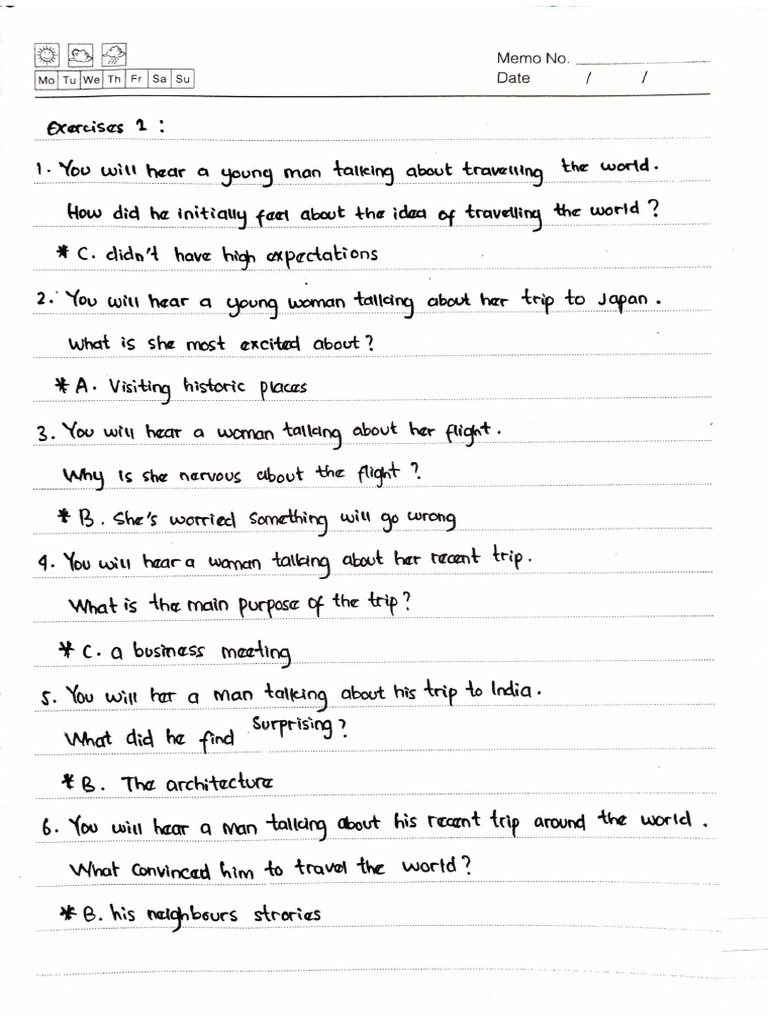 Memo No.
Mo Tu We Th Fr Sa Su
Date / /
Exercises 1 :
1. You will hear a young man talking about travelling the world.
How did he initially feel about the idea of travelling the world?
* C. didn't have high expectations
2. You will hear a young woman talking about her trip to Japan.
What is she most excited about?
* A. Visiting historic places
3. You will hear a woman talking about her flight.
Why is she nervous about the flight?
* B. She's worried something will go wrong
4. You will hear a woman talking about her recent trip.
What is the main purpose of the trip?
* C. a business meeting
5. You will her a man talking about his trip to India.
What did he find surprising?
* B. The architecture
6. You will hear a man talking about his recent trip around the world.
What convinced him to travel the world?
* B. his neighbours strories